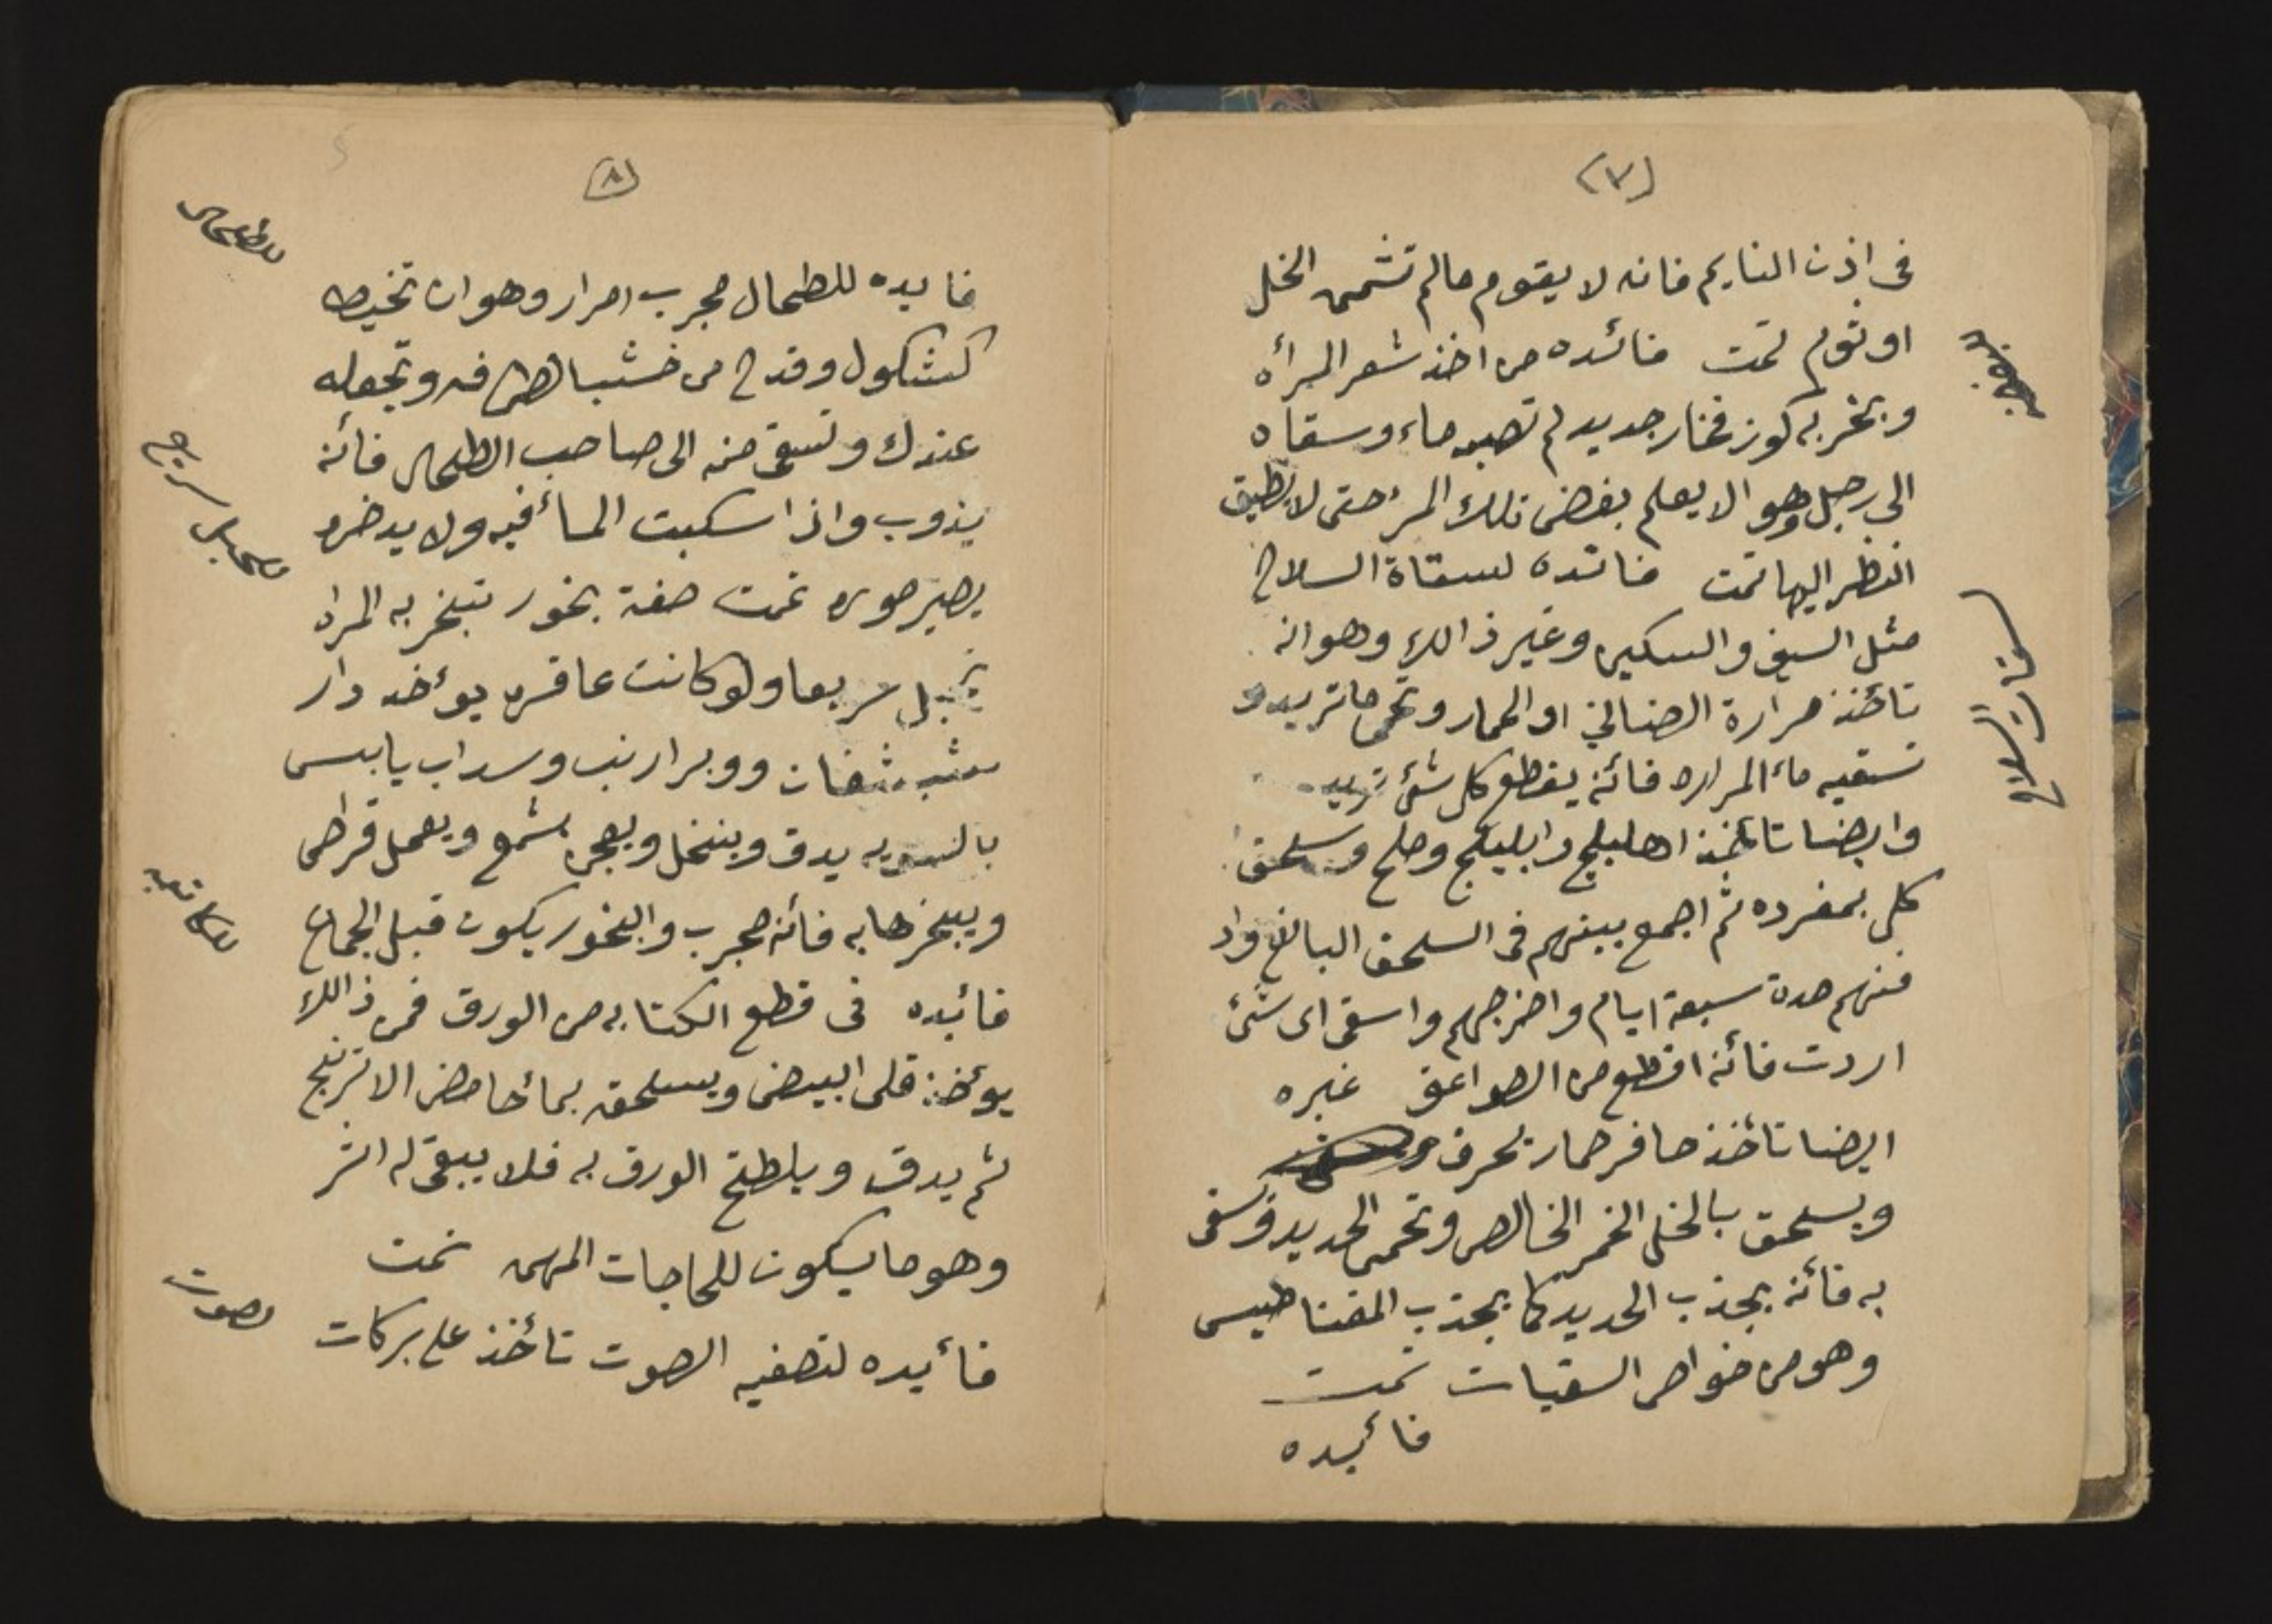 (٧)
في اذن النايم فانه لا يقوم مالم تشممه الخل
او ثوم تمت فائده من اخذ شعر المرأه
وبخر به كوز فخار جديد لم تصبه ماء وسقاه
الى رجل وهو الا يعلم بغض تلك المرء حتى لا يطيق
النظر اليها تمت فائده لسقاة السلاح
مثل السيف والسكين وغير ذالك وهو انه
تاخذ مرارة الضاني او الحمار وتحمي ما تريد و
تسقيه ماء المراره فائنه يقطع كل شئ تريد
وايضا تائخذ اهليلج وابليلج وملح وسلحق
كل بمفرده ثم اجمع بينهم في السلحق البالغ واد
فنهم مدة سبعة ايام واخرجهم واسقى اى شئ
اردت فائنه اقطع من الصواعق غيره
ايضا تائخذ حافر حمار تحرف
ويسلحق بالخل الخمر الخالص وتحمى الحديد وتسقى
به فائنه يجذب الحديد كما يجذب المغناطيس
وهو من خواص السقيات تمت
فائيده
سقات السلاح
(٨)
فايده للطحال مجرب امرار وهو ان تخيط
كشكول وقدح من خشب الطرفه وتجعله
عندك وتسقى منه الى صاحب الطحال فائنه
يذوب واذا سكبت المائ فيه ولا يدخره
يصير صوره تمت صفة بخور تتبخر به المراه
تحبل سريعا ولو كانت عاقره يوئخد دار
شيشغان ووبر ارنب وسداب يابس
بالسويه يدق وينخل ويعجن بشمع ويعمل قراص
ويبخرها به فائنه مجرب والبخور يكون قبل الجماع
فائيده في قطع الكتابه من الورق فمن ذالك
يوئخذ قلى ابيض ويسلحق بمائ حامض الاترنج
ثم يدق ويلطخ الورق به فلا يبقى له اثر
وهو ما يكون للحاجات المهمه تمت
فائيده لتصفيه الصوت تائخذ على بركات
للطحال
للحبل سريع
للكاتبه
للصوت